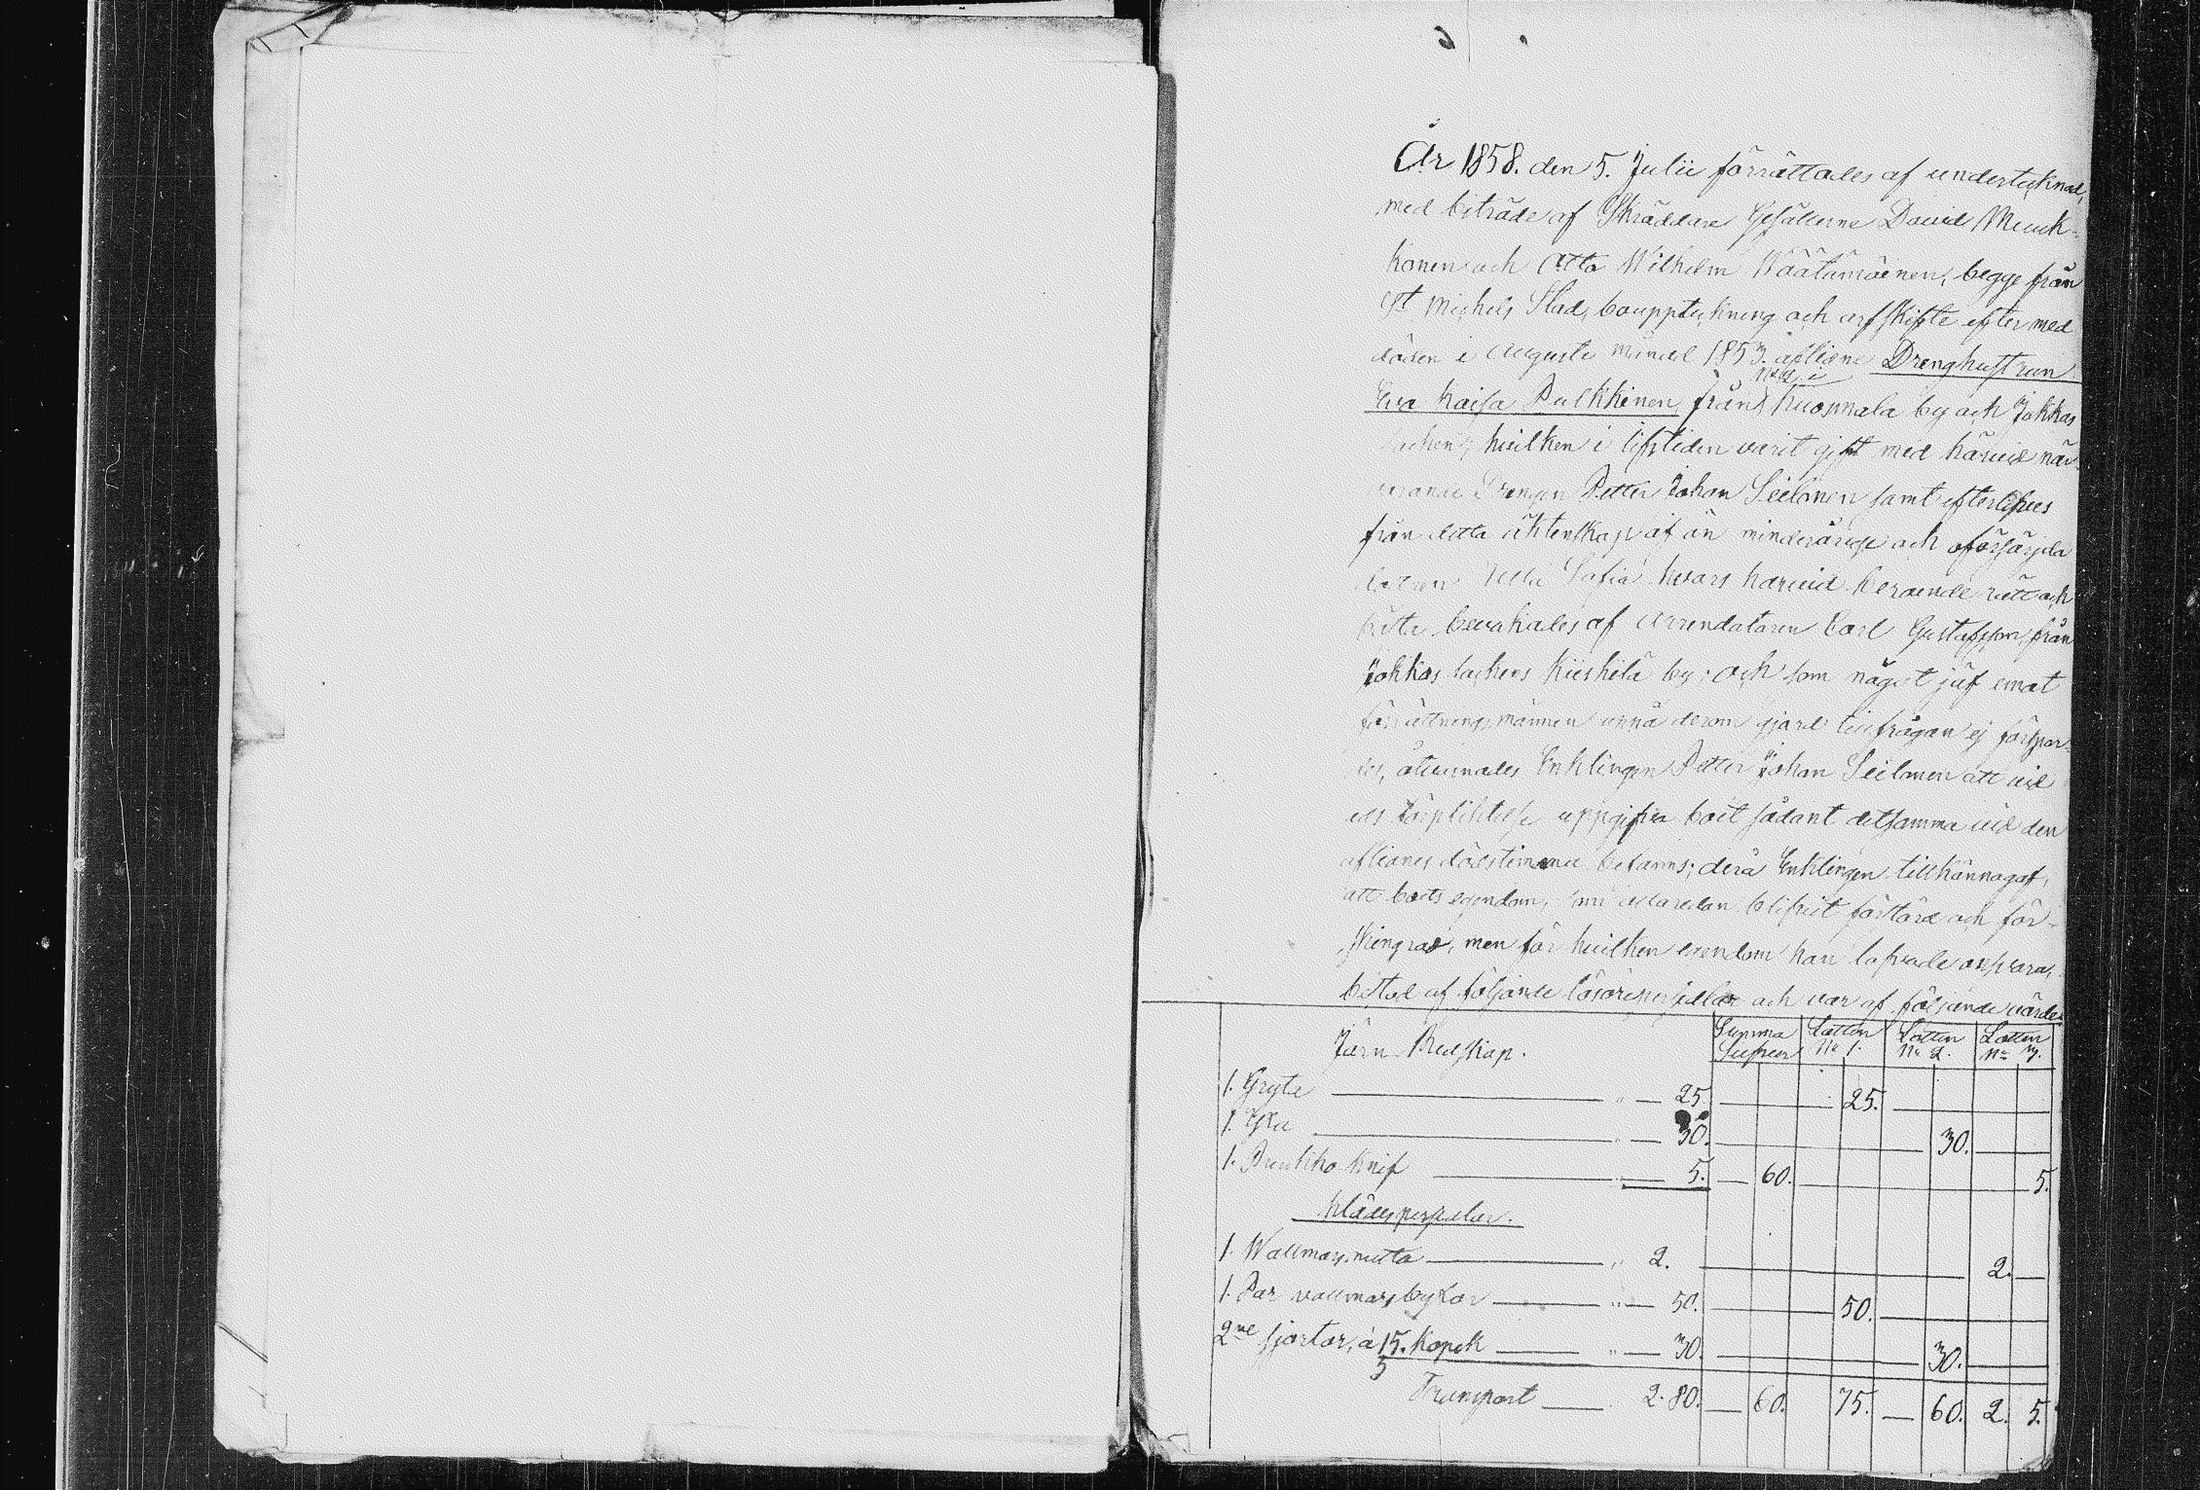 År 1858. den 5. Julii förrättades af undertecknad,
med biträde af Skräddare Gesällerne David Muuk-
konen och Otto Wilhelm Wäätämöinen, begge från
St Michels Stad, bouppteckning och arfskifte efter med
döden i Augusti månad 1853. aflidne Drenghustrun
Eva Kaisa Pulkkinen från No 2 i Kuosmala by och Jokkas
socken, hvilken i lifstiden varit gift med härvid när-
varande Drengen Petter Johan Seilonen samt efterlefves
från detta äktenskap af en minderårig och oförsörjda
dottren Ulla Sofia, hvars härvid beroende rätt och
bästa bevakades af Arrendatoren Carl Gustafsson från
Jokkas sockens Kiiskilä by; och som något jäf emot
förrättningsmännen uppå derom gjord tillfrågan ej förspor-
des, åtvarnades Enklingen Petter Johan Seilonen att vid
eds förpliktelse uppgifva boet sådant detsamma vid den
aflidnes dödstimma befanns; derå Enklingen tillkännagaf,
att boets egendom, som allaredan blifvit förtärd och för-
skingrad, men för hvilken egendom han lofvade ansvara,
bestod af följande lösörepersedlar och var af följande värde
Järn Redskap.
Summa Silfver
Lotten No 1.
Lotten No 2.
Lotten No 3.
1. Gryta " — 25. 25.
1. Yxa " — 30. 30.
1. Puukko Knif " — 5. — 60. 5.
Klädespersedlar.
1. Wallmars mutta " 2. 2. —
1. Par vallmars byxor " — 50. 50.
2ne Skjortor, à 15. Kopek " — 30. 30.
Transport 2. 80. — 60. 75. — 60. 2. 5.